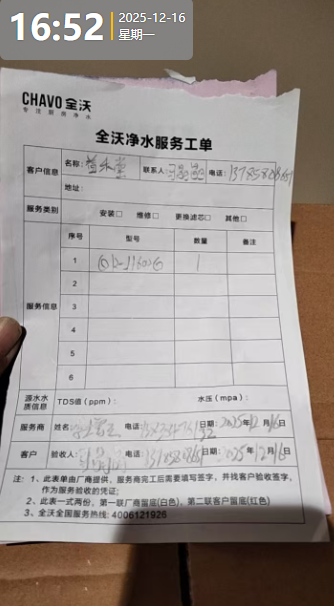 16:52
2025-12-16
星期一
CHAVO全沃
专注厨房净水
全沃净水服务工单
客户信息 名称: 联系人: 电话:
地址:
服务类别 安装□ 维修□ 更换滤芯□ 其他□
服务信息
序号 型号 数量 备注
1 1
2
3
4
5
6
源水水质信息 TDS值(ppm): 水压(mpa):
服务商 姓名 电话 日期: 2025年12月16日
客户 验收人: 电话: 日期: 2025年12月16日
注: 1、此表单由厂商提供,服务商完工后需要填写签字,并找客户验收签字,
作为服务验收的凭证;
2、此表一式两份,第一联厂商留底(白色),第二联客户留底(红色)
3、全沃全国服务热线: 4006121926